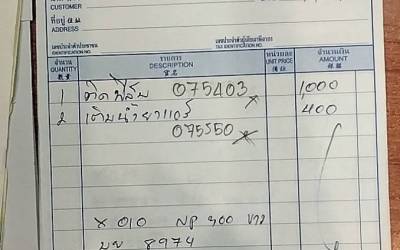 CUSTOMER
ที่อยู่
ADDRESS
เลขประจำตัวประชาชน เลขประจำตัวผู้เสียภาษีอากร
IDENTIFICATION NO. TAX IDENTIFICATION NO.
จำนวน รายการ หน่วยละ จำนวนเงิน
QUANTITY DESCRIPTION UNIT PRICE AMOUNT
數量 貨名 價銀 銀碼
1 ติดฟิล์ม 075403 1000
2 เติมน้ำยาแอร์ 400
075550
8974